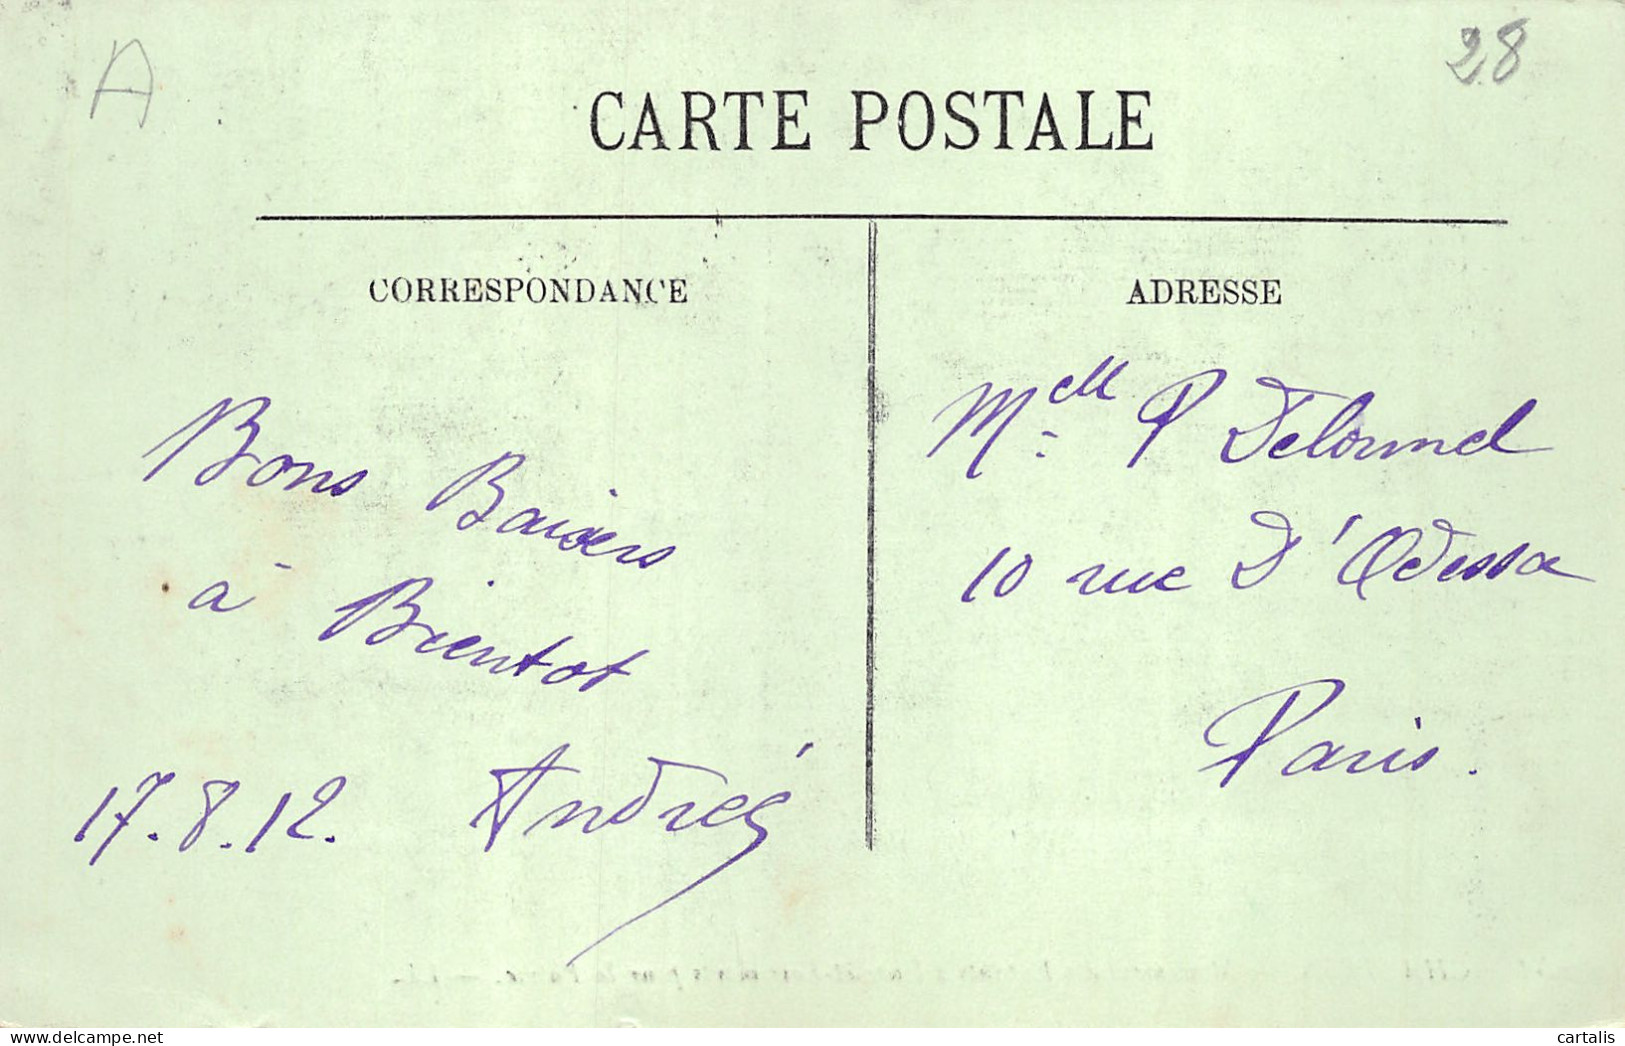 A
28
CARTE POSTALE
CORRESPONDANCE
ADRESSE
Bons Baisers
à Bientot
17.8.12. Andreé
Melle P Delormel
10 rue D'Odessa
Paris.
www.delcampe.net
cartalis